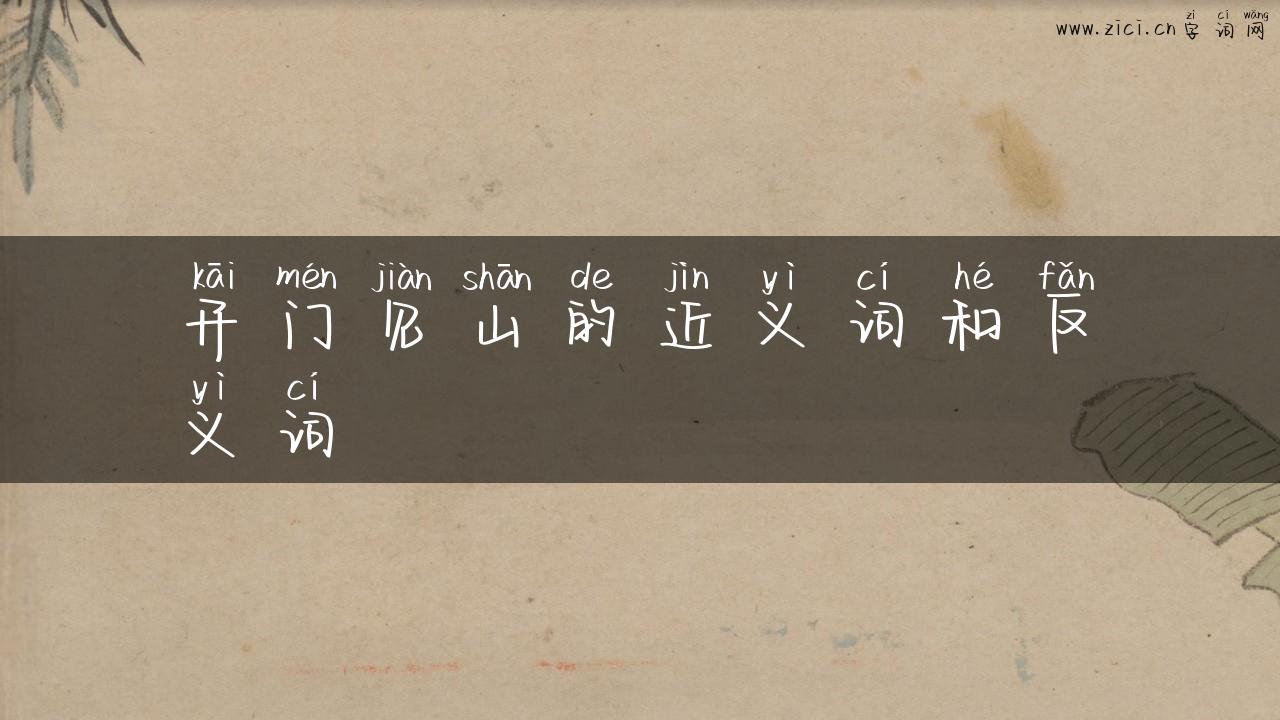 zì cí wǎng
www.zici.cn 字 词 网
kāi mén jiàn shān de jìn yì cí hé fǎn
开 门 见 山 的 近 义 词 和 反
yì cí
义 词